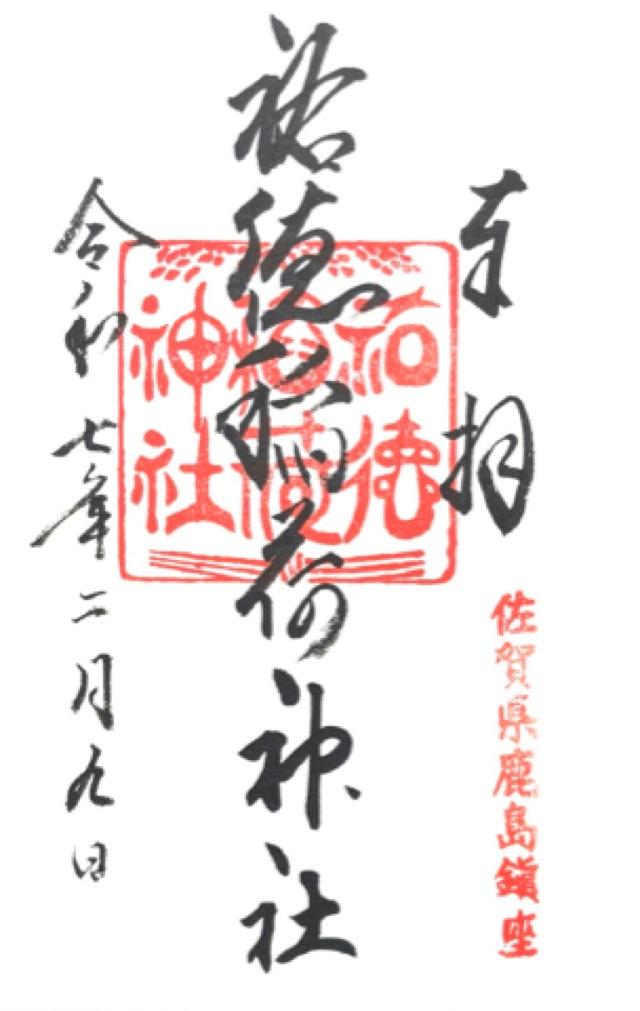 奉拝
佐賀県鹿島鎮座
祐徳稲荷神社
祐徳
稲荷
神社
令和七年二月九日